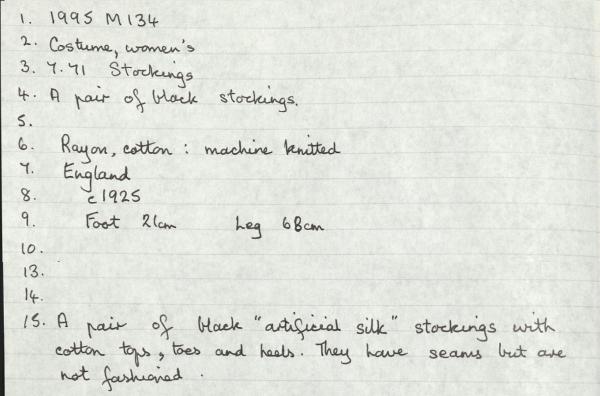 1. 1995 M134
2. Costume, women's
3. 7.71 Stockings
4. A pair of black stockings.
5.
6. Rayon, cotton : machine knitted
7. England
8. c1925
9. Foot 21cm Leg 68cm
10.
13.
14.
15. A pair of black "artificial silk" stockings with
cotton tops, toes and heels. They have seams but are
not fashioned.